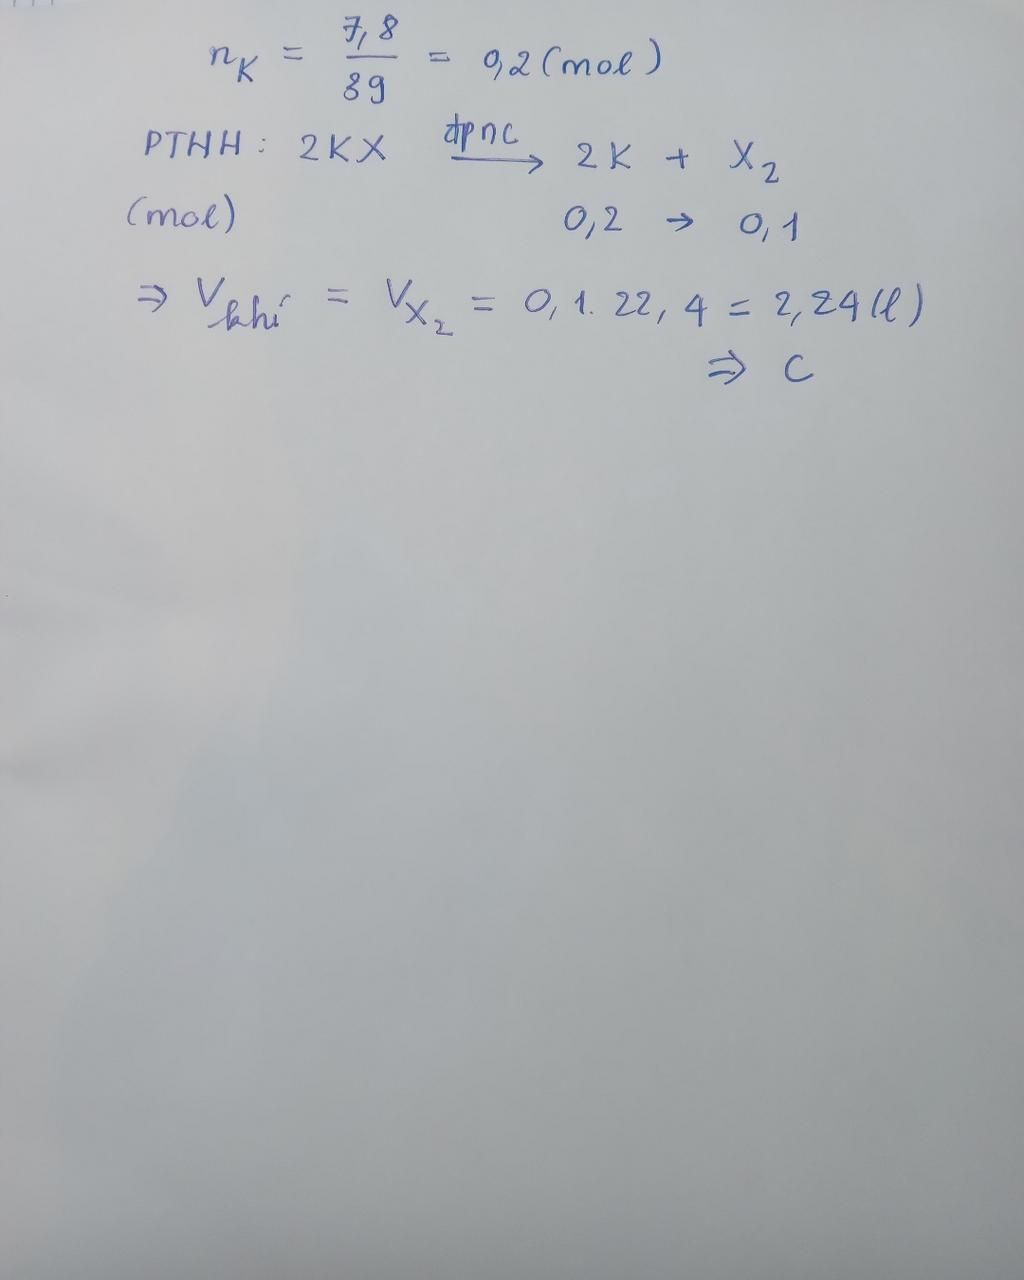 n_K = 7,8/39 = 0,2 (mol)
PTHH : 2KX đpnc → 2K + X₂
(mol) 0,2 → 0,1
⇒ V_khí = V_X₂ = 0,1. 22,4 = 2,24 (l)
⇒ C